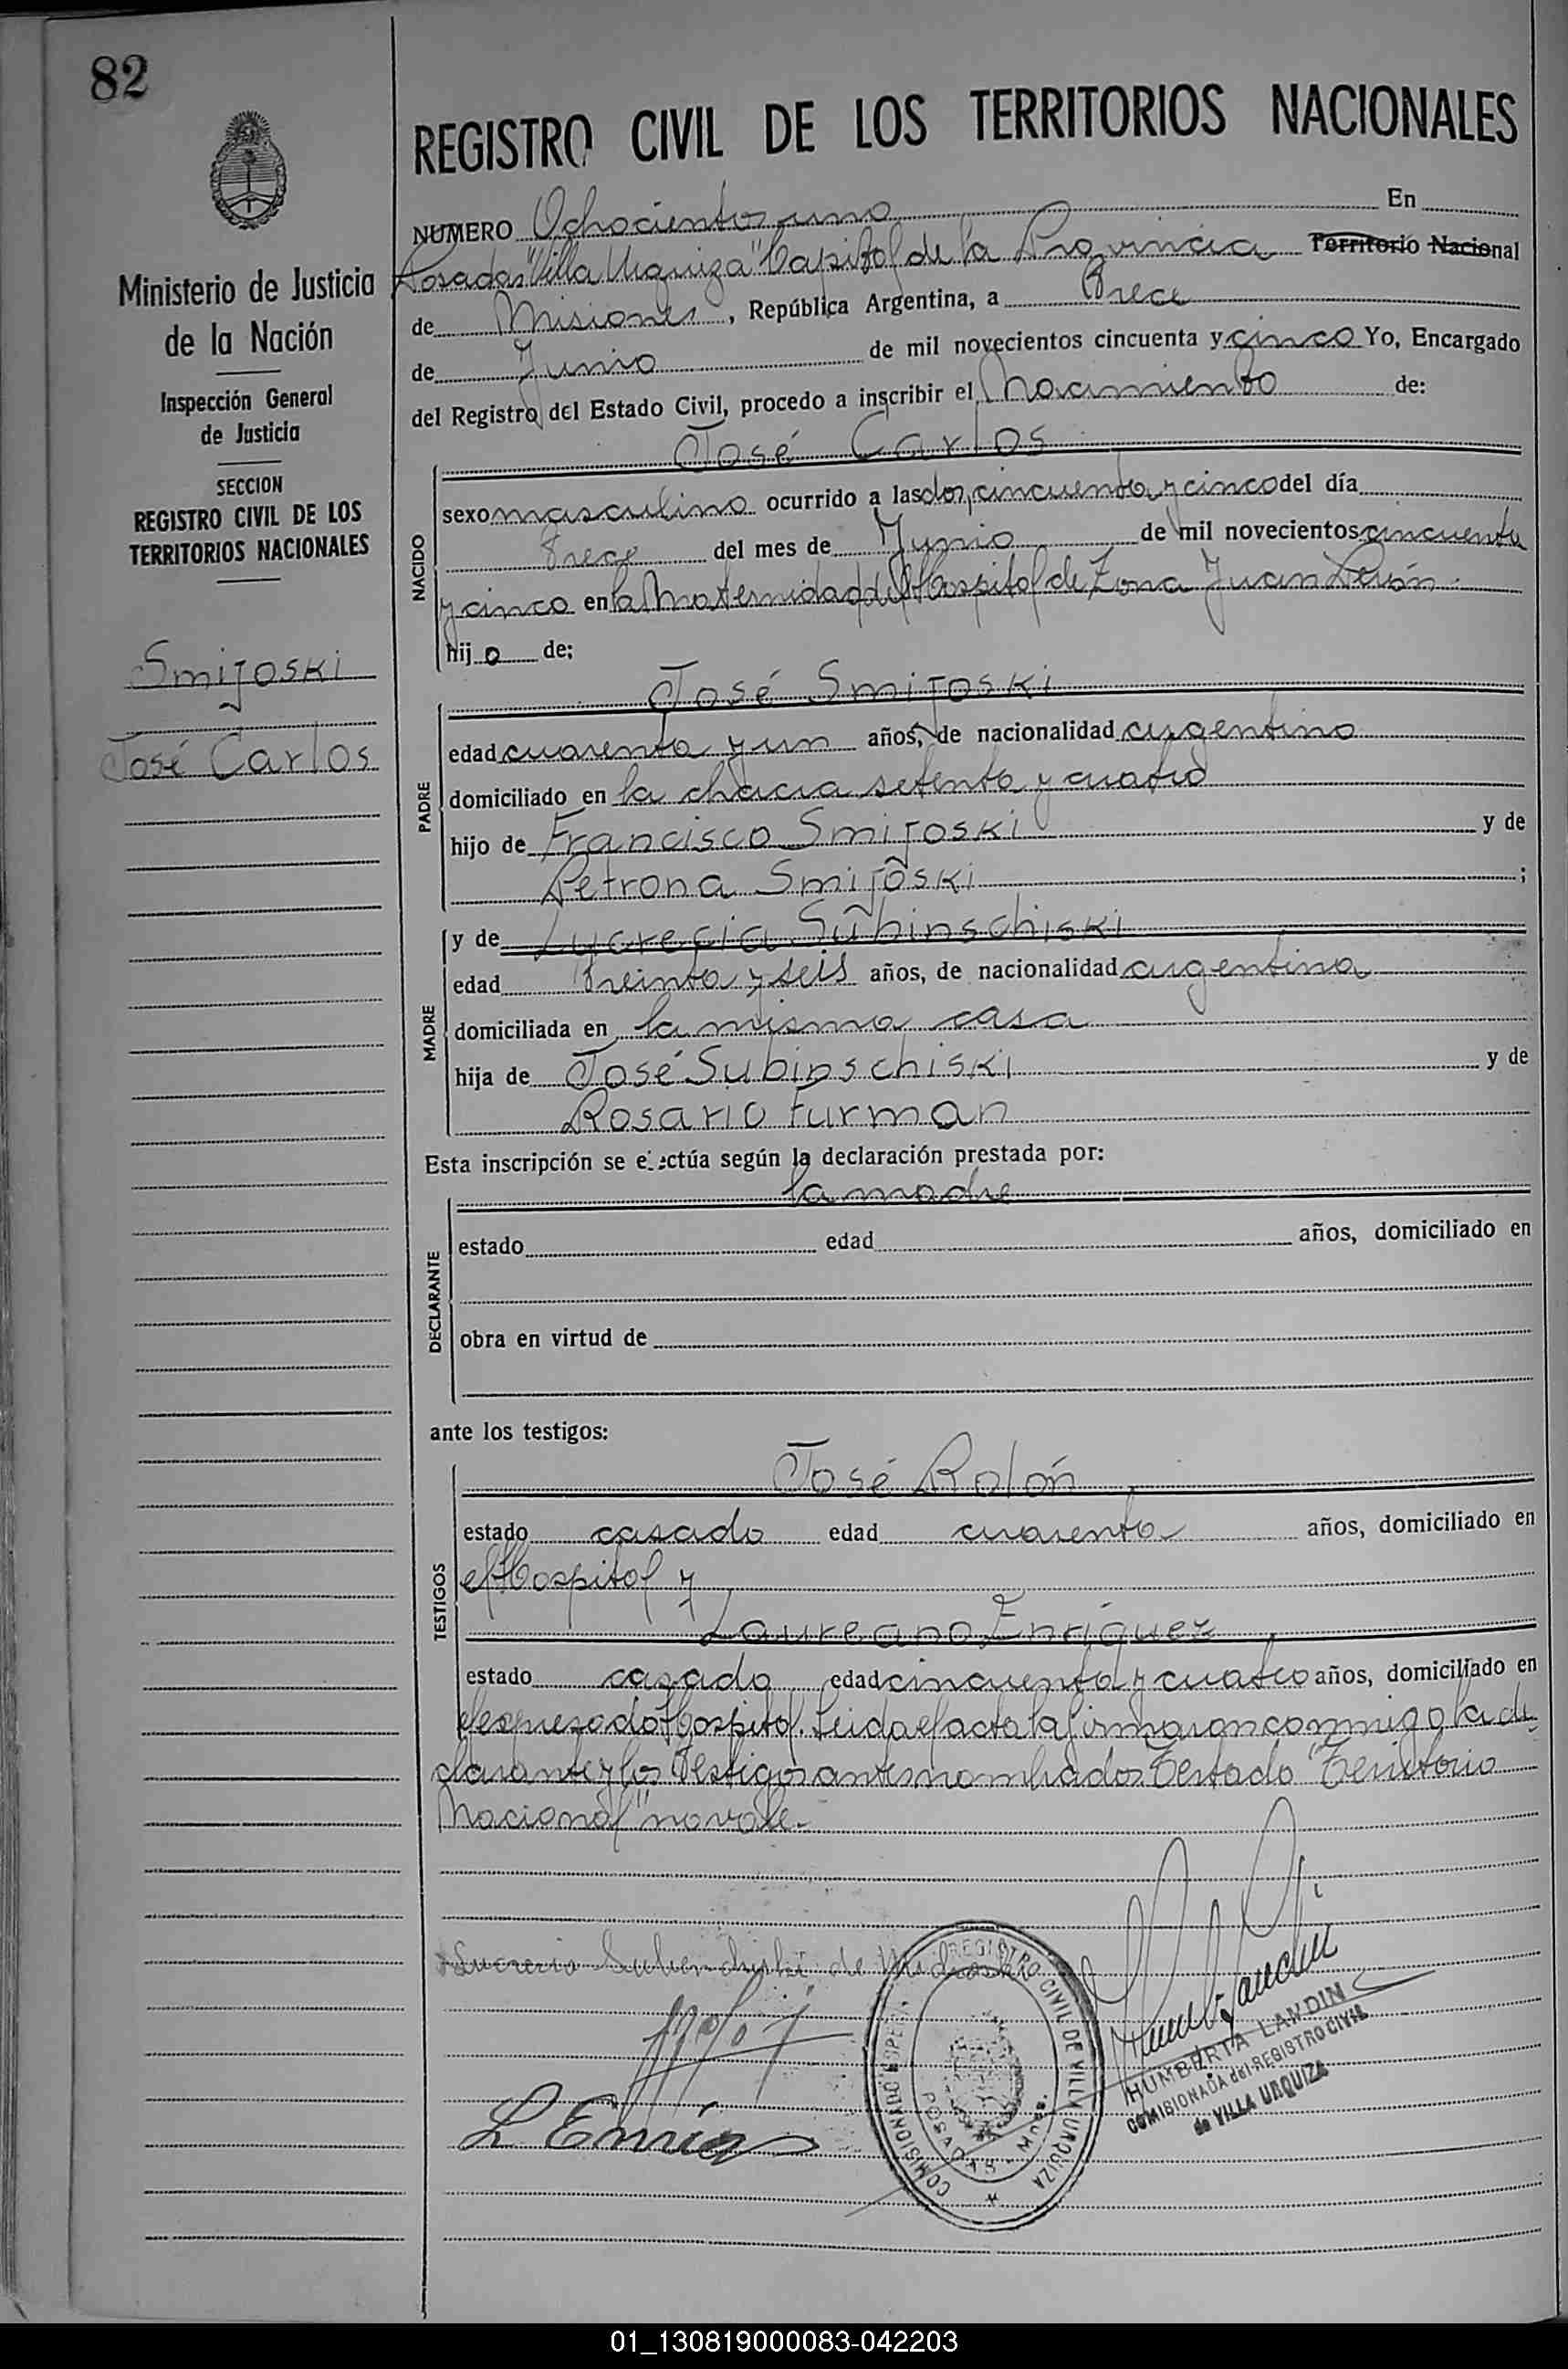 82
REGISTRO CIVIL DE LOS TERRITORIOS NACIONALES
Ministerio de Justicia
de la Nación
Inspección General
de Justicia
SECCION
REGISTRO CIVIL DE LOS
TERRITORIOS NACIONALES
Smijoski
José Carlos
NUMERO Ochocientos uno En
Posadas "Villa Urquiza" Capital de la Provincia Territorio Nacional
de Misiones, República Argentina, a Trece
de Junio de mil novecientos cincuenta y cinco Yo, Encargado
del Registro del Estado Civil, procedo a inscribir el Nacimiento de:
José Carlos
NACIDO
sexo masculino ocurrido a las dos, cincuenta y cinco del día
trece del mes de Junio de mil novecientos cincuenta
y cinco en la Maternidad del Hospital de Zona Juan Perón.
hijo de:
José Smijoski
PADRE
edad cuarenta y un años, de nacionalidad argentino
domiciliado en la chacra setenta y cuatro
hijo de Francisco Smijoski y de
Petrona Smijoski ;
MADRE
y de Lucrecia Subinschiski
edad treinta y seis años, de nacionalidad argentina
domiciliada en la misma casa
hija de José Subinschiski y de
Rosario Furman
Esta inscripción se efectúa según la declaración prestada por:
la madre
DECLARANTE
estado edad años, domiciliado en
obra en virtud de
ante los testigos:
José Rolón
TESTIGOS
estado casado edad cuarenta años, domiciliado en
el Hospital y
Laureano Enriquez
estado casado edad cincuenta y cuatro años, domiciliado en
el expresado Hospital. Leida el acta la firmaron conmigo la de
clarante y los testigos antes nombrados. Testado "Territorio
Nacional" no vale.-
Lucrecia de
L Enriq
REGISTRO CIVIL DE VILLA URQUIZA
COMISIONADO
POSADAS
HUMBERTA LANDIN
COMISIONADA del REGISTRO CIVIL
de VILLA URQUIZA
01_130819000083-042203